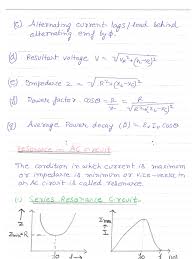 (c) Alternating current lags/lead behind
alternating emf by ϕ.
(d) Resultant voltage V = √V_R²+(V_L-V_C)²
(e) Impedance Z = √R²+(X_L-X_C)²
(f) Power factor cosθ = R/Z = R/√R²+(X_L-X_C)²
(g) Average Power decay (P) = E_v I_v cosθ
Resonance in AC circuit
The condition in which current is maximum
or impedance is minimum or vice-versa in
an AC circuit is called resonance.
(i) Series Resonance Circuit
Z
Z_min=R
f_0
f→
I_max
I
f_0
f→